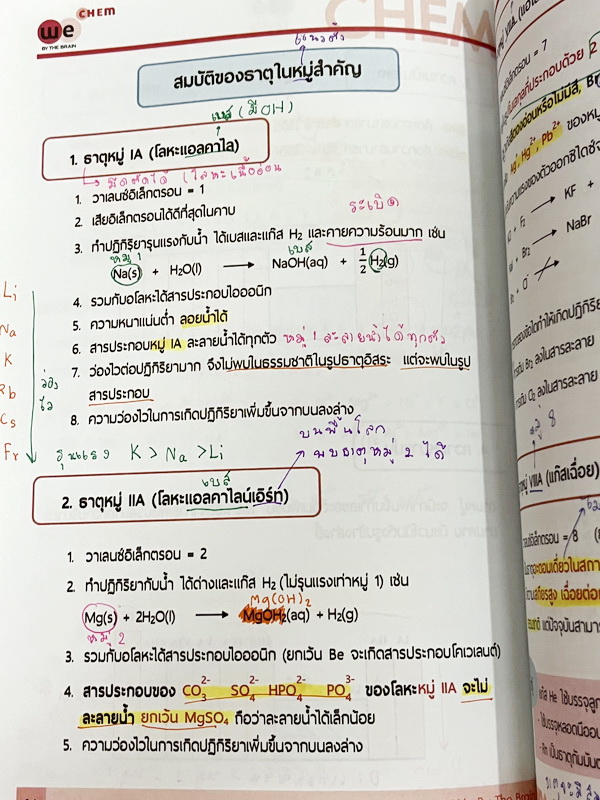 we CHEM
BY THE BRAIN
CHEM
แนวตั้ง
สมบัติของธาตุในหมู่สำคัญ
เบส (มี OH)
1. ธาตุหมู่ IA (โลหะแอลคาไล)
มีดตัดได้ (โลหะเนื้ออ่อน
1. วาเลนซ์อิเล็กตรอน = 1
2. เสียอิเล็กตรอนได้ดีที่สุดในคาบ
ระเบิด
3. ทำปฏิกิริยารุนแรงกับน้ำ ได้เบสและแก๊ส H₂ และคายความร้อนมาก เช่น
หมู่ 1
เบส
Na(s) + H₂O(l) → NaOH(aq) + 1/2 H₂(g)
4. รวมกับอโลหะได้สารประกอบไอออนิก
5. ความหนาแน่นต่ำ ลอยน้ำได้
6. สารประกอบหมู่ IA ละลายน้ำได้ทุกตัว หมู่ 1 ละลายน้ำได้ทุกตัว
7. ว่องไวต่อปฏิกิริยามาก จึงไม่พบในธรรมชาติในรูปธาตุอิสระ แต่จะพบในรูป
สารประกอบ
8. ความว่องไวในการเกิดปฏิกิริยาเพิ่มขึ้นจากบนลงล่าง
Li
Na
K
Rb
Cs
Fr
ว่องไว
รุนแรง K > Na > Li
บนพื้นโลก
พบธาตุหมู่ 2 ได้
เบส
2. ธาตุหมู่ IIA (โลหะแอลคาไลน์เอิร์ท)
1. วาเลนซ์อิเล็กตรอน = 2
2. ทำปฏิกิริยากับน้ำ ได้ด่างและแก๊ส H₂ (ไม่รุนแรงเท่าหมู่ 1) เช่น
Mg(OH)₂
Mg(s) + 2H₂O(l) → MgOH₂(aq) + H₂(g)
หมู่ 2
3. รวมกับอโลหะได้สารประกอบไอออนิก (ยกเว้น Be จะเกิดสารประกอบโคเวเลนต์)
4. สารประกอบของ CO₃²⁻ SO₄²⁻ HPO₄²⁻ PO₄³⁻ ของโลหะหมู่ IIA จะไม่
ละลายน้ำ ยกเว้น MgSO₄ ถือว่าละลายน้ำได้เล็กน้อย
5. ความว่องไวในการเกิดปฏิกิริยาเพิ่มขึ้นจากบนลงล่าง
อิเล็กตรอน = 7
ที่ประกอบด้วย 2
Hg²⁺, Pb²⁺ ของหมู่
→ KF +
Br₂ → NaBr
ทำให้เกิดปฏิกิริ
Br₂ ลงในสารละลาย
Cl₂ ลงในสารละลาย
หมู่ 8
VIIIA (แก๊สเฉื่อย)
= 8
He ใช้บรรจุลูก